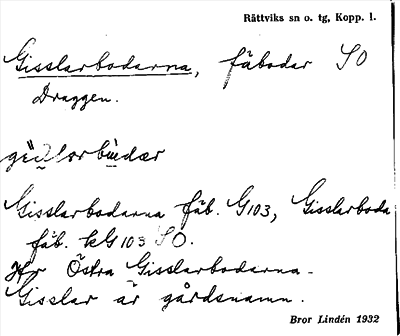 Rättviks sn o. tg, Kopp. l.
Gisslarbodarna, fäbodar SO
Draggen.
Gisslarbodarna fäb. G103, Gisslarboda
fäb. kG103 SO.
Hr Östra Gisslarbodarna.
Gisslar är gårdsnamn.
Bror Lindén 1932